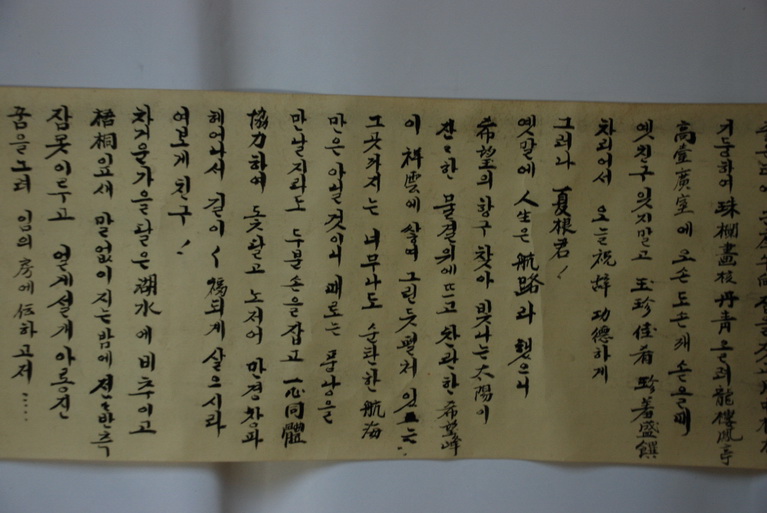 거동하여 珠欄畵枝丹靑올려 龍樓鳳亭
高堂廣室에 오손도손 해 손올때
옛친구 잇지말고 玉珍佳肴 珍羞盛饌
차리어서 오늘 祝辞 功德하게
그러나 夏根君!
옛말에 人生은 航路라 했으니
希望의 항구 찾아 빛나는 太陽이
잔잔한 물결위에 뜨고 찬란한 希望峰
이 祥雲에 살며 그린듯 펼처 있는
그곳까지는 너무나도 순탄한 航海
만은 아닐것이니 때로는 풍낭을
만날지라도 두분 손을 잡고 一心同體
協力하여 돗달고 노저어 만경창파
헤어나서 길이〱 福되게 살으시라
여보게 친구!
차거운 가을달은 湖水에 비추이고
梧桐잎새 말없이 지는밤에 전전반측
잠못이루고 얼게설게 아롱진
꿈을 그려 임의 房에 伝하고저 ....